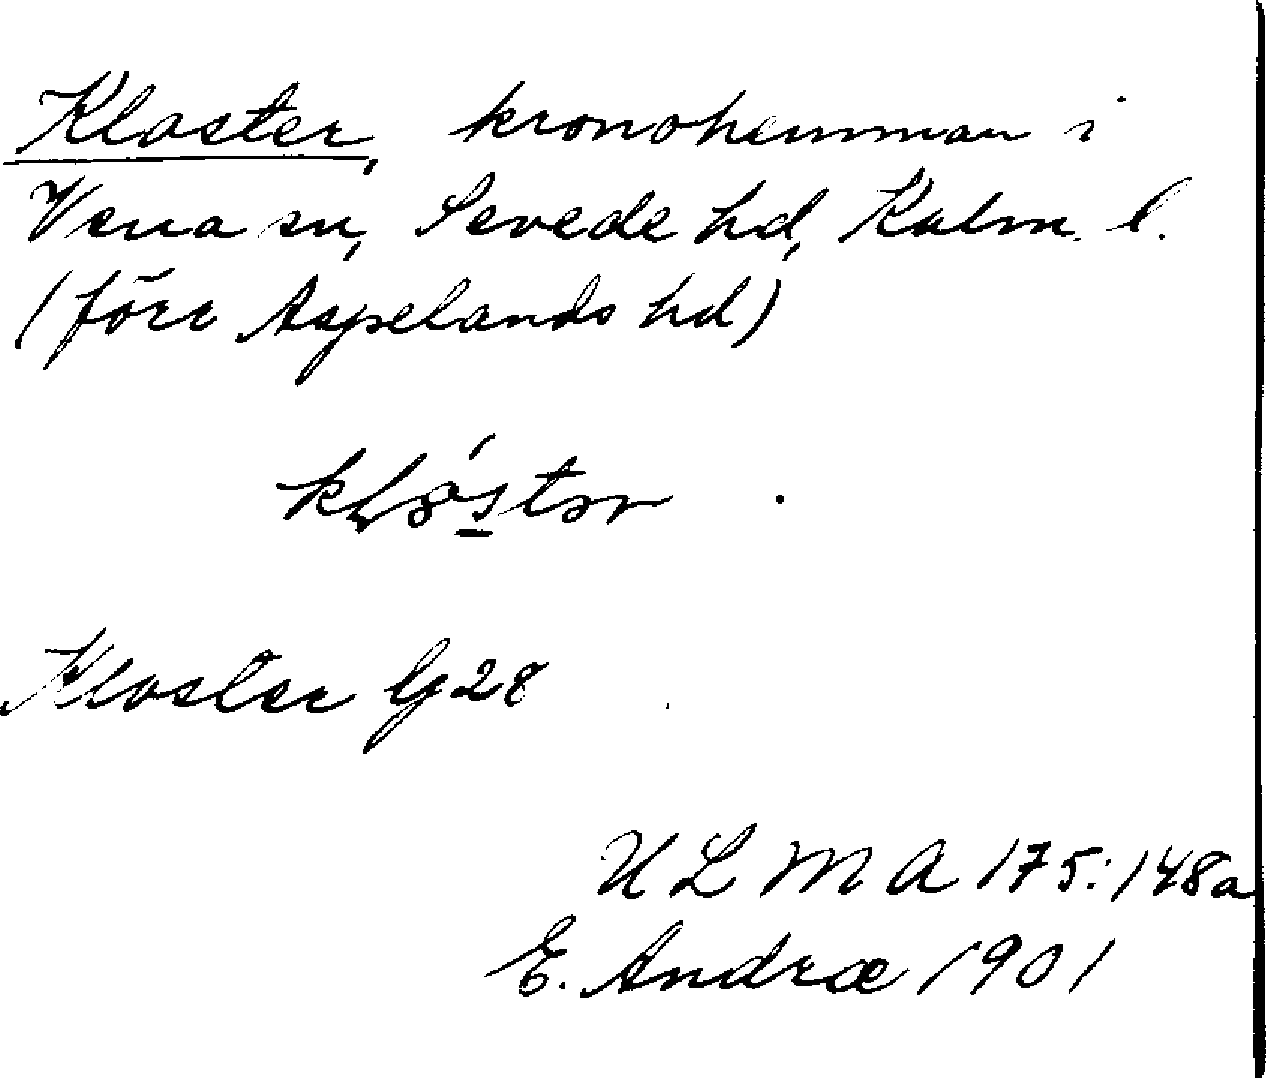 Kloster, kronohemman i
Vena sn, Sevede hd, Kalm. l.
(förr Aspelands hd)
Kloster G 28
ULMA 175:148a
E. Andræ 1901